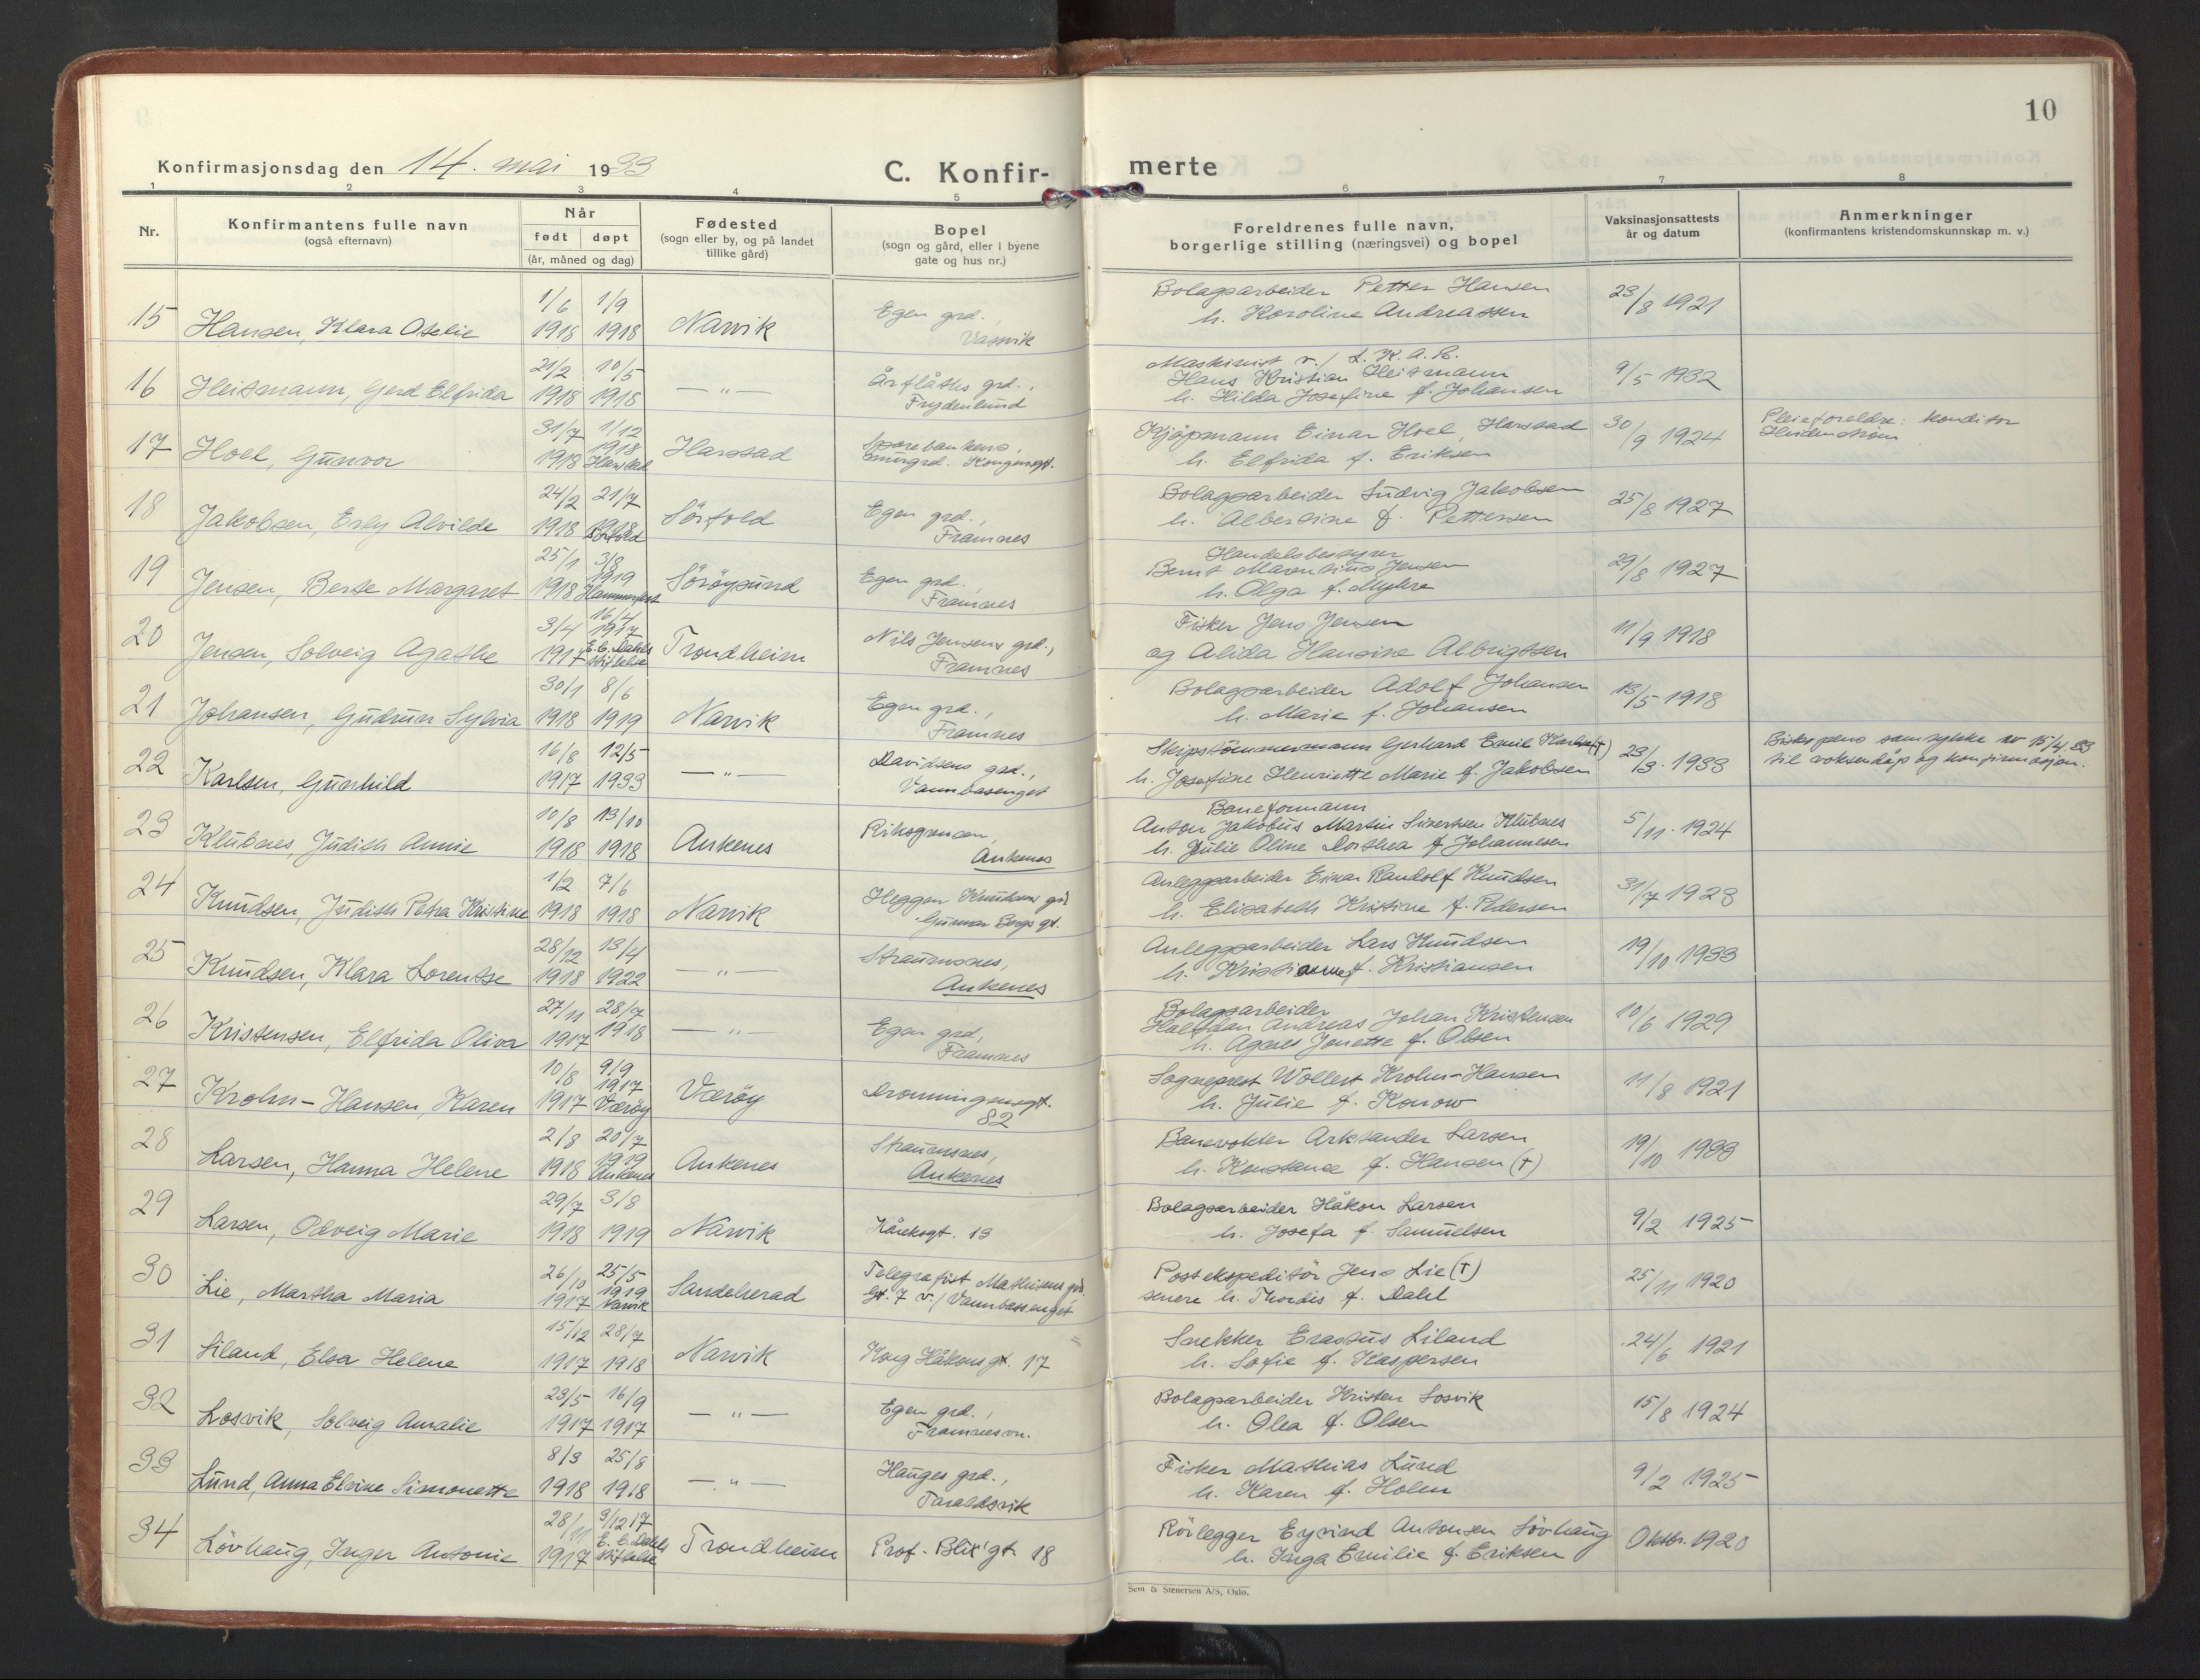 10
Konfirmasjonsdag den 14. mai 1933
C. Konfir-
merte
1 2 3 4 5 6 7 8
Nr.
Konfirmantens fulle navn
(også efternavn)
Når
født døpt
(år, måned og dag)
Fødested
(sogn eller by, og på landet
tillike gård)
Bopel
(sogn og gård, eller i byene
gate og hus nr.)
Foreldrenes fulle navn,
borgerlige stilling (næringsvei) og bopel
Vaksinasjonsattests
år og datum
Anmerkninger
(konfirmantens kristendomskunnskap m. v.)
15 Hansen, Klara Otelie
1/6 1918
1/9 1918
Narvik
Egen grd.,
Vassvik
Bolagsarbeider Petter Hansen
h. Karoline Andreassen
23/8 1921
16 Heitmann, Gerd Elfrida
21/2 1918
10/5 1918
— " —
Årflåths grd.,
Frydenlund
Maskinist v./ L.K.A.B.
Hans Kristian Heitmann
h. Hilda Josefine f. Johansen
9/5 1932
17 Hoel, Gunvor
31/7 1918
1/12 1918
Harstad
Harstad
Sparebankens
murgrd. Kongensgt.
Kjøpmann Einar Hoel, Harstad
h. Elfrida f. Eriksen
30/9 1924
Pleieforeldre: Konditor
Heidenstrøm
18 Jakobsen, Esly Alvilde
24/2 1918
21/7 1918
Sörfold
Sörfold
Egen grd.,
Framnes
Bolagsarbeider Ludvig Jakobsen
h. Albertine f. Pettersen
25/8 1927
19 Jensen, Berte Margaret
25/1 1918
3/8 1919
Hammerfest
Söröysund
Egen grd.
Framnes
Handelsbestyrer
Bernt Marentius Jensen
h. Olga f. Myhre
29/8 1927
20 Jensen, Solveig Agathe
3/4 1917
16/4 1917
E.C. Dahls
stiftelse
Trondheim
Nils Jensens grd.,
Framnes
Fisker Jens Jensen
og Alida Hansine Albrigtsen
11/9 1918
21 Johansen, Gudrun Sylvia
30/1 1918
8/6 1919
Narvik
Egen grd.,
Framnes
Bolagsarbeider Adolf Johansen
h. Marie f. Johansen
13/5 1918
22 Karlsen, Gunhild
16/8 1917
12/5 1933
— " —
Davidsens grd.,
Vannbasenget
Skipstömmermann Gerhard Emil Karlsen (†)
h. Josefine Henriette Marie f. Jakobsen
23/3. 1933
Biskopens samtykke av 15/4.33
til voksendåp og konfirmasjon.
23 Klubnes, Judith Annie
10/8 1918
13/10 1918
Ankenes
Riksgrensen,
Ankenes
Baneformann
Anton Jakobus Martin Sivertsen Klubnes
h. Julie Oline Dorthea f. Johannesen
5/11. 1924
24 Knudsen, Judith Petra Kristine
1/2 1918
7/6 1918
Narvik
Heggen Knudsens grd
Gunnar Bergs gt.
Anleggsarbeider Einar Randolf Knudsen
h. Elisabeth Kristine f. Pedersen
31/7 1923
25 Knudsen, Klara Lorentse
28/12 1918
13/4 1922
— " —
Straumsnes,
Ankenes
Anleggsarbeider Lars Knudsen
h. Kristianne f. Kristiansen
19/10 1933
26 Kristensen, Elfrida Oliva
27/11 1917
28/7 1918
— " —
Egen grd,
Framnes
Bolagsarbeider
Halfdan Andreas Johan Kristensen
h. Agnes Jonette f. Olsen
10/6 1929
27 Krohn-Hansen, Karen
10/8 1917
9/9 1917
Væröy
Væröy
Dronningensgt.
82
Sogneprest Wollert Krohn-Hansen
h. Julie f. Konow
11/8 1921
28 Larsen, Hanna Helene
2/8 1918
20/7 1919
Ankenes
Ankenes
Straumsnes,
Ankenes
Banevokter Arksander Larsen
h. Konstance f. Hansen (†)
19/10 1933
29 Larsen, Odveig Marie
29/7 1918
3/8 1919
Narvik
Håreksgt. 13
Bolagsarbeider Håkon Larsen
h. Josefa f. Samuelsen
9/2 1925
30 Lie, Martha Maria
26/10 1917
25/5 1919
Narvik
Sandeherad
Telegrafist Mathisens grd.
Gt. 7 v./ Vannbassenget
Postekspeditör Jens Lie (†)
senere h. Thordis f. Dahl
25/11 1920
31 Liland, Elsa Helene
15/12 1917
28/7 1918
Narvik
Kong Håkons gt. 17
Snekker Erasus Liland
h. Sofie f. Kaspersen
24/6 1921
32 Losvik, Solveig Amalie
23/5 1917
16/9 1917
— " —
Egen grd.,
Framnesvn.
Bolagsarbeider Kristen Losvik
h. Olea f. Olsen
15/8 1924
33 Lund, Anna Elvine Simonette
8/3 1918
25/8 1918
— " —
Hauges grd.,
Taraldsvik
Fisker Mathias Lund
h. Karen f. Holen
9/2 1925
34 Lövhaug, Inger Antonie
28/11 1917
9/12 17
E.C. Dahls
stiftelse
Trondheim
Prof. Blix' gt. 18
Rörlegger Eyvind Antonsen Lövhaug
h. Inga Emilie f. Eriksen
Oktbr. 1920
Sem & Stenersen A/S, Oslo.